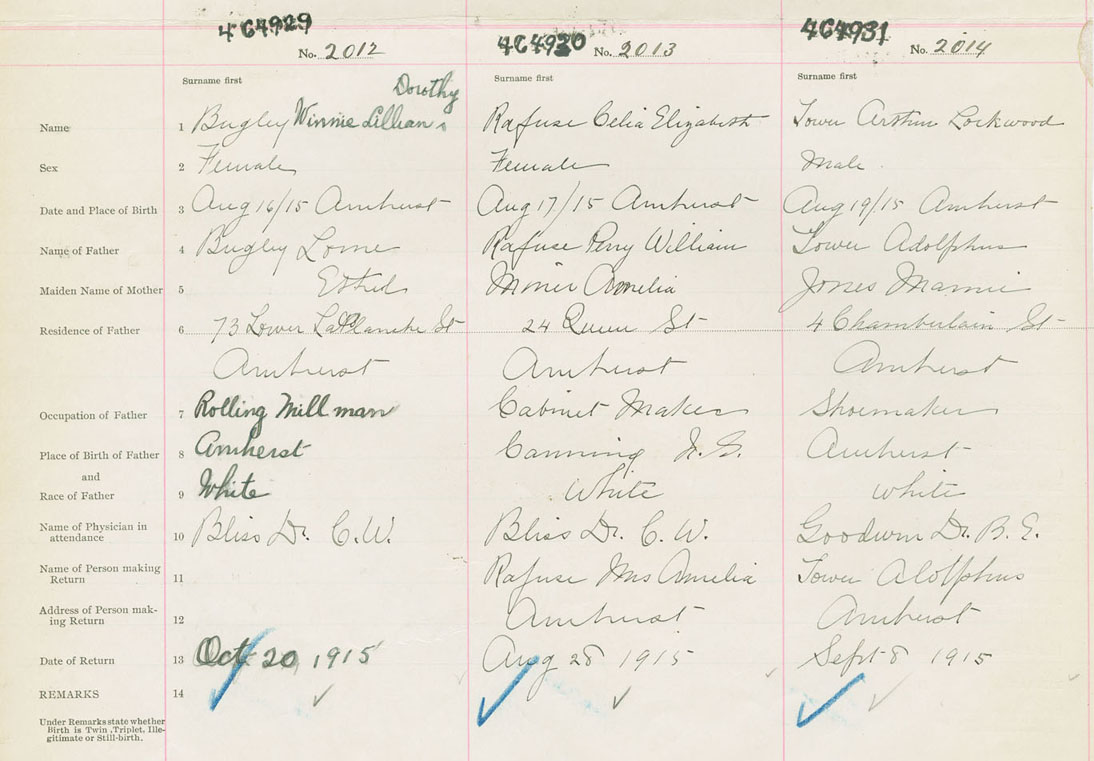 464929 464930 464931
No. 2012 No. 2013 No. 2014
Surname first Surname first Surname first
Dorothy
Name 1 Bugley Winnie Lillian Rafuse Celia Elizabeth Tower Arthur Lockwood
Sex 2 Female Female Male
Date and Place of Birth 3 Aug 16/15 Amherst Aug 17/15 Amherst Aug 19/15 Amherst
Name of Father 4 Bugley Lorne Rafuse Perry William Tower Adolphus
Maiden Name of Mother 5 Ethel Miner Amelia Jones Mamie
Residence of Father 6 73 Lower LaPlanche St 24 Queen St 4 Chamberlain St
Amherst Amherst Amherst
Occupation of Father 7 Rolling Mill man Cabinet Maker Shoemaker
Place of Birth of Father 8 Amherst Canning N.S. Amherst
and
Race of Father 9 White White White
Name of Physician in
attendance 10 Bliss Dr. C.W. Bliss Dr. C.W. Goodwin Dr. B.E.
Name of Person making
Return 11 Rafuse Mrs Amelia Tower Adolphus
Address of Person mak-
ing Return 12 Amherst Amherst
Date of Return 13 Oct 20 1915 Aug 28 1915 Sept 8 1915
REMARKS 14
Under Remarks state whether
Birth is Twin, Triplet, Ille-
gitimate or Still-birth.